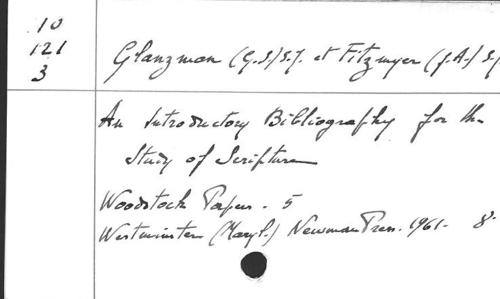 10
121
3
Glanzman (G.S.) S.J. et Fitzmyer (J.A.) S.J
An Introductory Bibliography for the
Study of Scripture
Woodstock Papers - 5
Westminster (Maryl.) Newman Press. 1961 - 8°